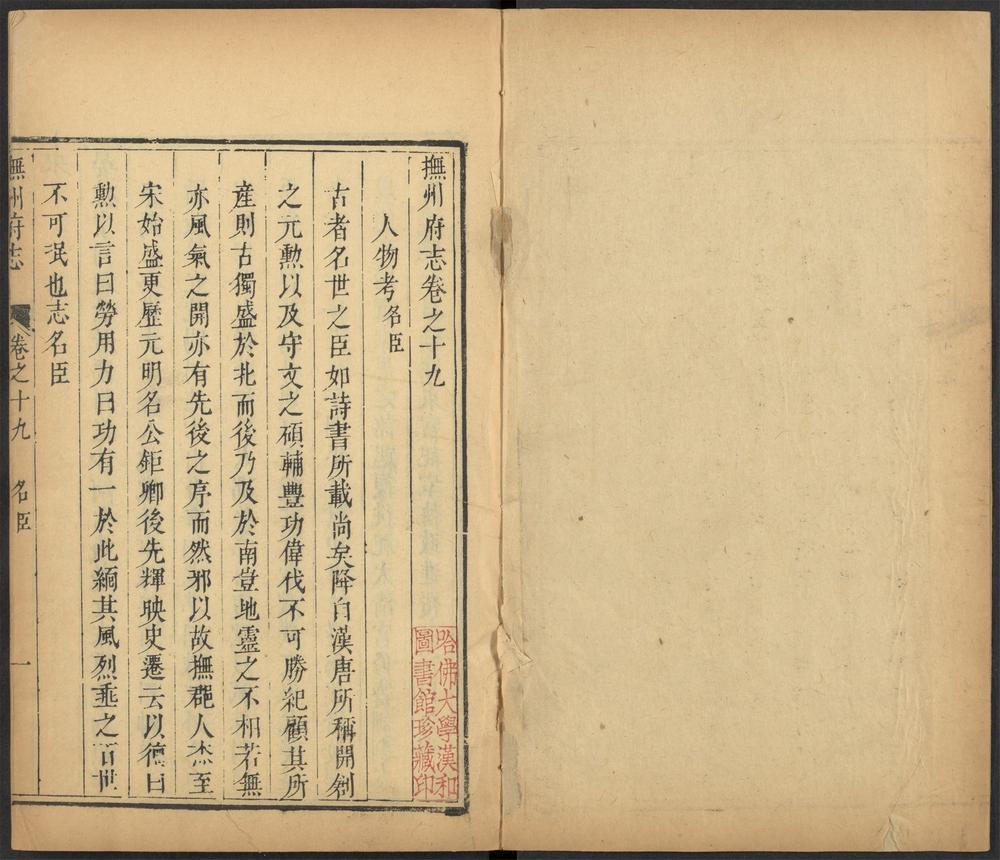 撫州府志卷之十九
人物考名臣
古者名世之臣如詩書所載尚矣降自漢唐所稱開創
之元勲以及守文之碩輔豐功偉伐不可勝紀顧其所
產則古獨盛於北而後乃及於南豈地靈之不相若無
亦風氣之開亦有先後之序而然邪以故撫郡人杰至
宋始盛更歷元明名公鉅卿後先輝映史遷云以德曰
勲以言曰勞用力曰功有一於此緬其風烈垂之百世
不可泯也志名臣
撫州府志 卷之十九 名臣 一
哈佛大學漢和
圖書館珍藏印